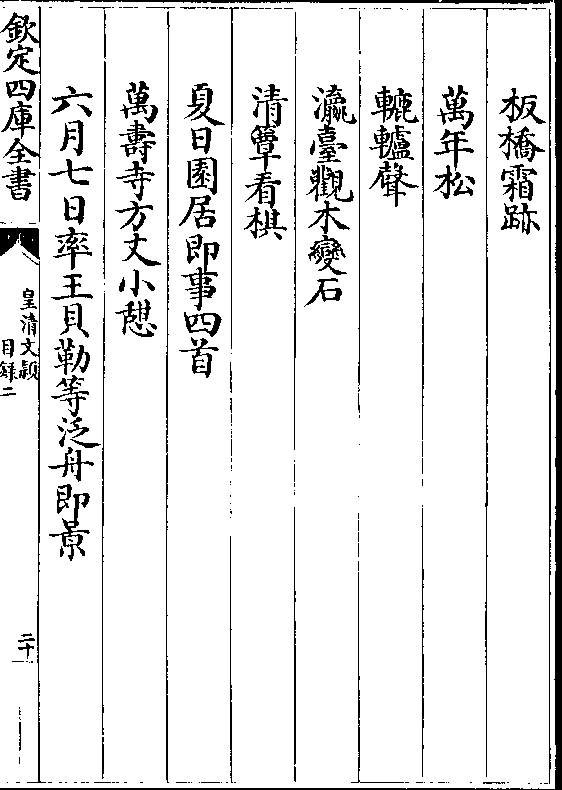 板橋霜跡
萬年松
轆轤聲
瀛臺觀木變石
清簟看棋
夏日園居即事四首
萬壽寺方丈小憩
六月七日率王貝勒等泛舟即景
欽定四庫全書
皇清文穎
目録二
二十